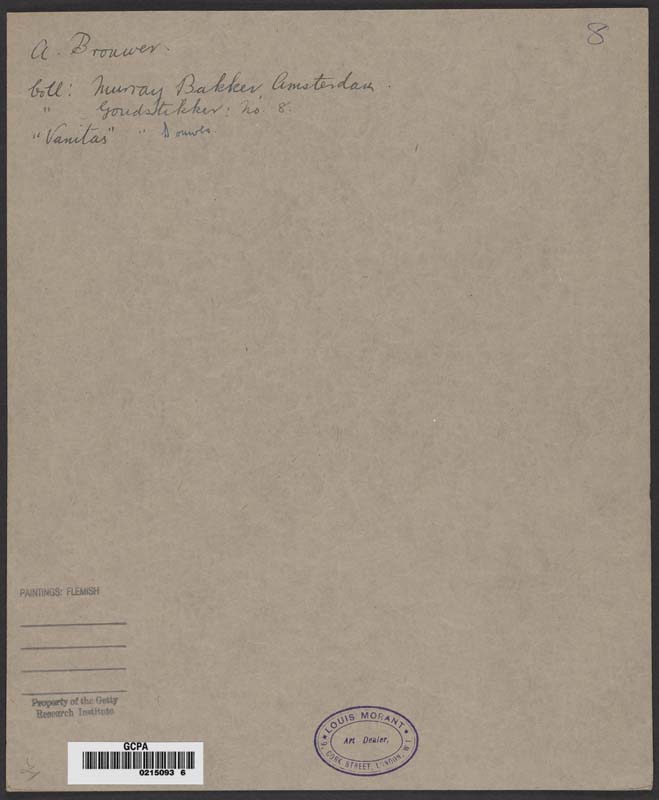 8
A. Brouwer.
Coll: Murray Bakker, Amsterdam.
" Goudstikker: No. 8.
"Vanitas" " Douwes.
PAINTINGS: FLEMISH
Property of the Getty
Research Institute
LOUIS MORANT
Art Dealer.
9, CORK STREET, LONDON, W 1
GCPA
0215093 6